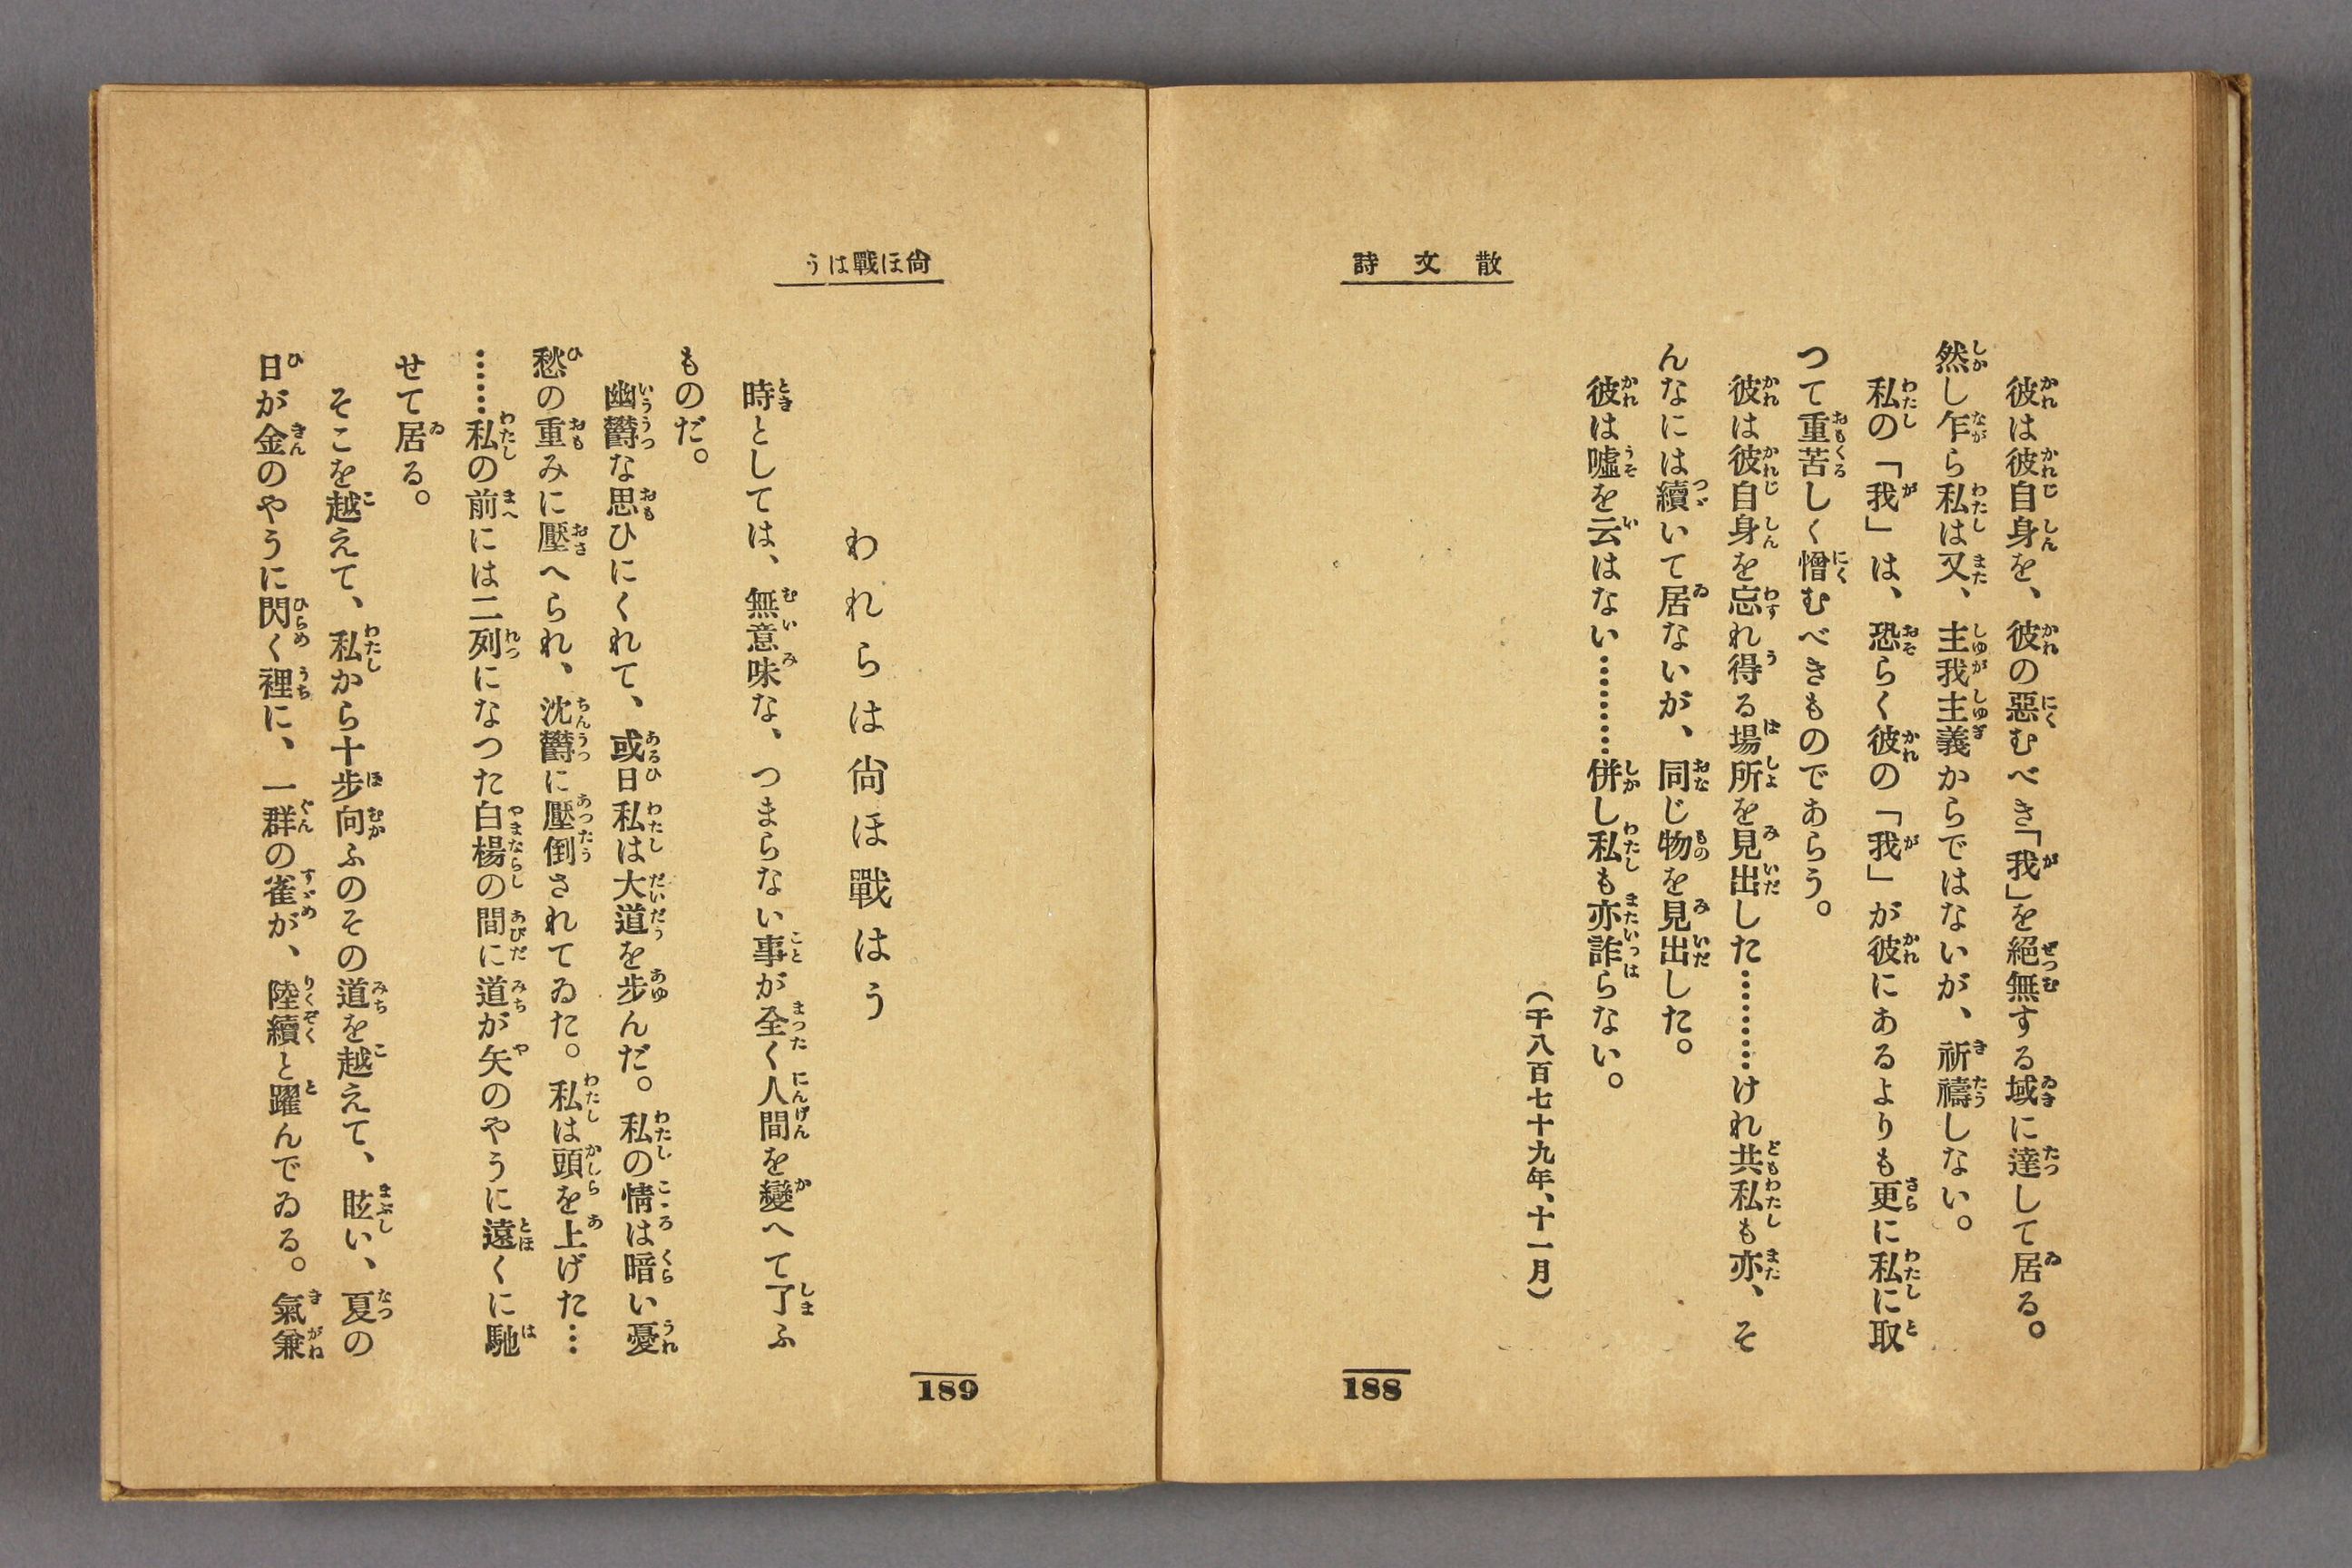 散文詩
彼は彼自身を、彼の惡むべき「我」を絕無する域に達して居る。
然し乍ら私は又、主我主義からではないが、祈禱しない。
私の「我」は、恐らく彼の「我」が彼にあるよりも更に私に取
つて重苦しく憎むべきものであらう。
彼は彼自身を忘れ得る場所を見出した…………けれ共私も亦、そ
んなには續いて居ないが、同じ物を見出した。
彼は噓を云はない…………併し私も亦詐らない。
(千八百七十九年、十一月)
188
尙ほ戰はう
われらは尙ほ戰はう
時としては、無意味な、つまらない事が全く人間を變へて了ふ
ものだ。
幽鬱な思ひにくれて、或日私は大道を步んだ。私の情は暗い憂
愁の重みに壓へられ、沈鬱に壓倒されてゐた。私は頭を上げた…
……私の前には二列になつた白楊の間に道が矢のやうに遠くに馳
せて居る。
そこを越えて、私から十步向ふのその道を越えて、眩い、夏の
日が金のやうに閃く裡に、一群の雀が、陸續と躍んでゐる。氣兼
189